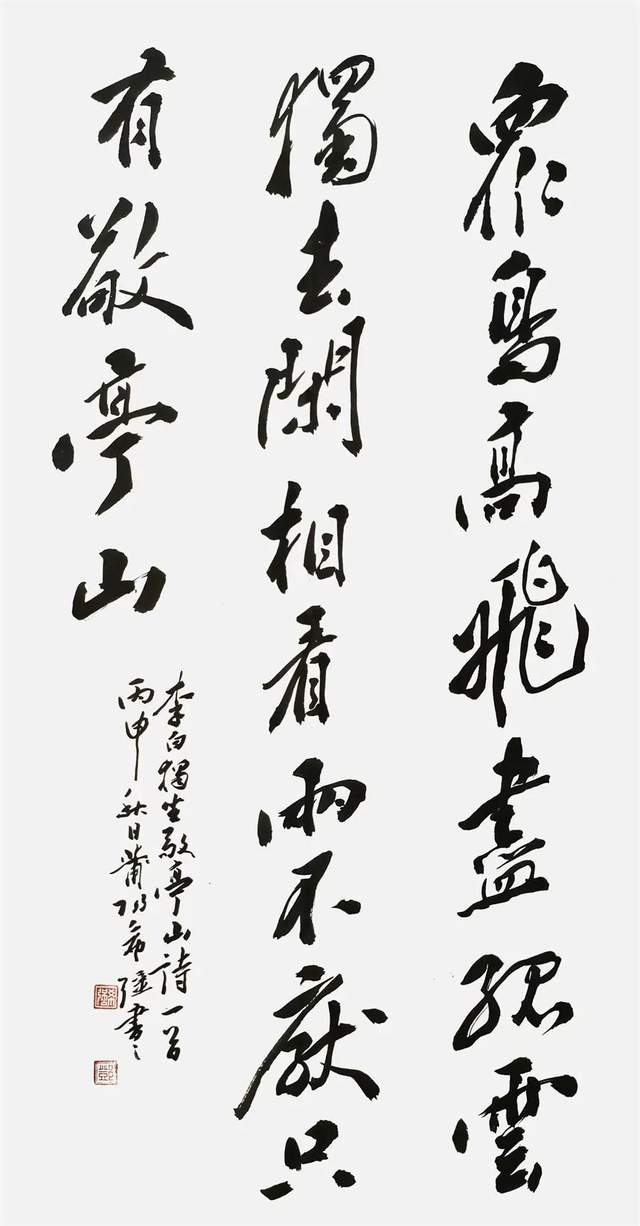 眾鳥高飛盡孤雲
獨去閑相看兩不厭只
有敬亭山
李白獨坐敬亭山詩一首
丙申秋日莆陽希強書